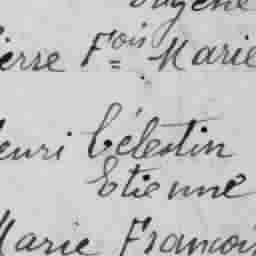 Eugène
ierre F.ois Marie
enri Célestin
Etienne
Marie François